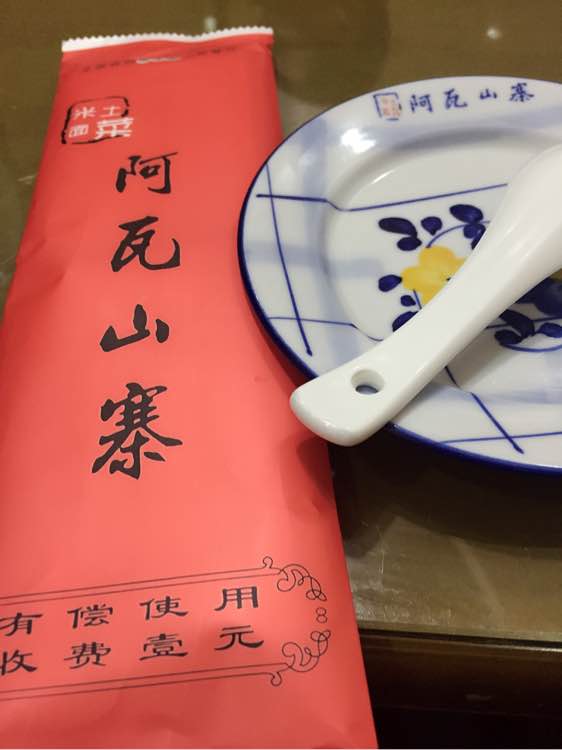 米土
面菜
阿瓦山寨
有偿使用
收费壹元
阿瓦山寨